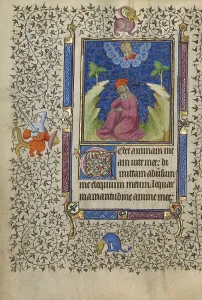 Tedet animam me
am uite mee: di
mittam aduersum
me eloquium meum. loquar
in amaritudine anime mee: